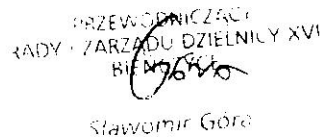 PRZEWODNICZĄCY
RADY I ZARZĄDU DZIELNICY XVI
Sławomir Góra